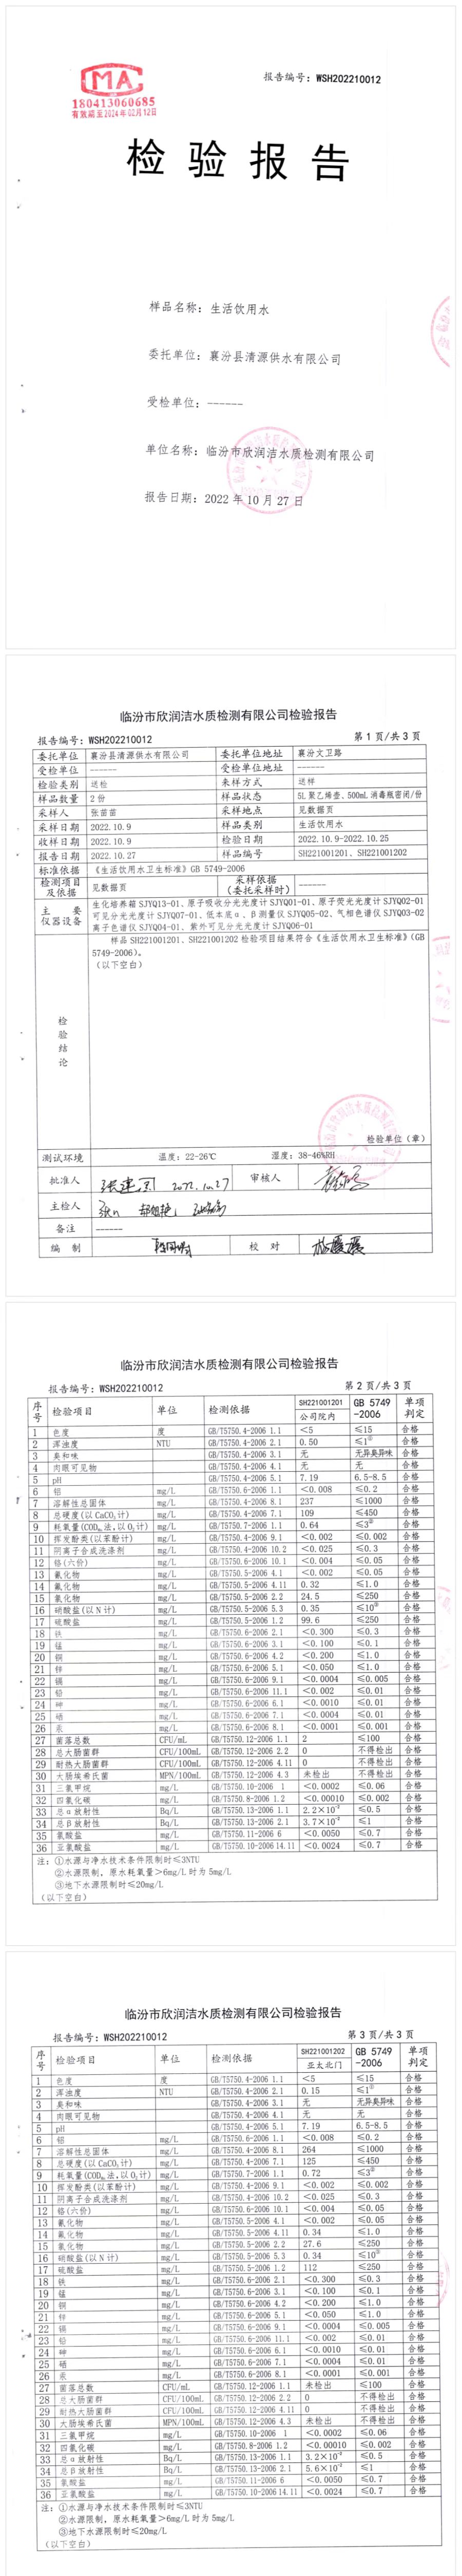 报告编号：WSH202210012
MA
180413060685
有效期至2024年02月12日
检验报告
样品名称：生活饮用水
委托单位：襄汾县清源供水有限公司
受检单位：------
单位名称：临汾市欣润洁水质检测有限公司
报告日期：2022年10月27日
临汾市欣润洁水质检测有限公司检验报告
报告编号：WSH202210012 第1页/共3页
委托单位 襄汾县清源供水有限公司 委托单位地址 襄汾文卫路
受检单位 ------ 受检单位地址 ------
检验类别 送检 来样方式 送样
样品数量 2份 样品状态 5L聚乙烯壶、500mL消毒瓶密闭/份
采样人 张苗苗 采样地点 见数据页
采样日期 2022.10.9 样品类别 生活饮用水
收样日期 2022.10.9 检验日期 2022.10.9-2022.10.25
报告日期 2022.10.27 样品编号 SH221001201、SH221001202
标准依据 《生活饮用水卫生标准》GB 5749-2006
检测项目及依据 见数据页 采样依据（委托采样时） ------
主要仪器设备 生化培养箱SJYQ13-01、原子吸收分光光度计SJYQ01-01、原子荧光光度计SJYQ02-01
可见分光光度计SJYQ07-01、低本底α、β测量仪SJYQ05-02、气相色谱仪SJYQ03-02
离子色谱仪SJYQ04-01、紫外可见分光光度计SJYQ06-01
检验结论
样品SH221001201、SH221001202检验项目结果符合《生活饮用水卫生标准》(GB
5749-2006)。
（以下空白）
检验单位（章）
测试环境 温度：22-26℃ 湿度：38-46%RH
批准人 2022.10.27 审核人
主检人
备注 ------
编制 校对
临汾市欣润洁水质检测有限公司检验报告
报告编号：WSH202210012 第2页/共3页
序号 检验项目 单位 检测依据 SH221001201 公司院内 GB 5749-2006 单项判定
1 色度 度 GB/T5750.4-2006 1.1 <5 ≤15 合格
2 浑浊度 NTU GB/T5750.4-2006 2.1 0.50 ≤1① 合格
3 臭和味 GB/T5750.4-2006 3.1 无 无异臭异味 合格
4 肉眼可见物 GB/T5750.4-2006 4.1 无 无 合格
5 pH GB/T5750.4-2006 5.1 7.19 6.5-8.5 合格
6 铝 mg/L GB/T5750.6-2006 1.1 <0.008 ≤0.2 合格
7 溶解性总固体 mg/L GB/T5750.4-2006 8.1 237 ≤1000 合格
8 总硬度(以CaCO₃计) mg/L GB/T5750.4-2006 7.1 109 ≤450 合格
9 耗氧量(CODMn法,以O₂计) mg/L GB/T5750.7-2006 1.1 0.64 ≤3② 合格
10 挥发酚类(以苯酚计) mg/L GB/T5750.4-2006 9.1 <0.002 ≤0.002 合格
11 阴离子合成洗涤剂 mg/L GB/T5750.4-2006 10.2 <0.025 ≤0.3 合格
12 铬(六价) mg/L GB/T5750.6-2006 10.1 <0.004 ≤0.05 合格
13 氰化物 mg/L GB/T5750.5-2006 4.1 <0.002 ≤0.05 合格
14 氟化物 mg/L GB/T5750.5-2006 4.11 0.32 ≤1.0 合格
15 氯化物 mg/L GB/T5750.5-2006 2.2 24.5 ≤250 合格
16 硝酸盐(以N计) mg/L GB/T5750.5-2006 5.3 0.35 ≤10③ 合格
17 硫酸盐 mg/L GB/T5750.5-2006 1.2 99.6 ≤250 合格
18 铁 mg/L GB/T5750.6-2006 2.1 <0.300 ≤0.3 合格
19 锰 mg/L GB/T5750.6-2006 3.1 <0.100 ≤0.1 合格
20 铜 mg/L GB/T5750.6-2006 4.2 <0.200 ≤1.0 合格
21 锌 mg/L GB/T5750.6-2006 5.1 <0.050 ≤1.0 合格
22 镉 mg/L GB/T5750.6-2006 9.1 <0.0004 ≤0.005 合格
23 铅 mg/L GB/T5750.6-2006 11.1 <0.002 ≤0.01 合格
24 砷 mg/L GB/T5750.6-2006 6.1 <0.0010 ≤0.01 合格
25 硒 mg/L GB/T5750.6-2006 7.1 <0.0004 ≤0.01 合格
26 汞 mg/L GB/T5750.6-2006 8.1 <0.0001 ≤0.001 合格
27 菌落总数 CFU/mL GB/T5750.12-2006 1.1 2 ≤100 合格
28 总大肠菌群 CFU/100mL GB/T5750.12-2006 2.2 0 不得检出 合格
29 耐热大肠菌群 CFU/100mL GB/T5750.12-2006 4.11 0 不得检出 合格
30 大肠埃希氏菌 MPN/100mL GB/T5750.12-2006 4.3 未检出 不得检出 合格
31 三氯甲烷 mg/L GB/T5750.10-2006 1 <0.0002 ≤0.06 合格
32 四氯化碳 mg/L GB/T5750.8-2006 1.2 <0.00010 ≤0.002 合格
33 总α放射性 Bq/L GB/T5750.13-2006 1.1 2.2×10⁻² ≤0.5 合格
34 总β放射性 Bq/L GB/T5750.13-2006 2.1 3.7×10⁻² ≤1 合格
35 氯酸盐 mg/L GB/T5750.11-2006 6 <0.0050 ≤0.7 合格
36 亚氯酸盐 mg/L GB/T5750.10-2006 14.11 <0.0024 ≤0.7 合格
注：①水源与净水技术条件限制时≤3NTU
②水源限制，原水耗氧量>6mg/L时为5mg/L
③地下水源限制时≤20mg/L
（以下空白）
临汾市欣润洁水质检测有限公司检验报告
报告编号：WSH202210012 第3页/共3页
序号 检验项目 单位 检测依据 SH221001202 亚太北门 GB 5749-2006 单项判定
1 色度 度 GB/T5750.4-2006 1.1 <5 ≤15 合格
2 浑浊度 NTU GB/T5750.4-2006 2.1 0.15 ≤1① 合格
3 臭和味 GB/T5750.4-2006 3.1 无 无异臭异味 合格
4 肉眼可见物 GB/T5750.4-2006 4.1 无 无 合格
5 pH GB/T5750.4-2006 5.1 7.19 6.5-8.5 合格
6 铝 mg/L GB/T5750.6-2006 1.1 <0.008 ≤0.2 合格
7 溶解性总固体 mg/L GB/T5750.4-2006 8.1 264 ≤1000 合格
8 总硬度(以CaCO₃计) mg/L GB/T5750.4-2006 7.1 125 ≤450 合格
9 耗氧量(CODMn法,以O₂计) mg/L GB/T5750.7-2006 1.1 0.72 ≤3② 合格
10 挥发酚类(以苯酚计) mg/L GB/T5750.4-2006 9.1 <0.002 ≤0.002 合格
11 阴离子合成洗涤剂 mg/L GB/T5750.4-2006 10.2 <0.025 ≤0.3 合格
12 铬(六价) mg/L GB/T5750.6-2006 10.1 <0.004 ≤0.05 合格
13 氰化物 mg/L GB/T5750.5-2006 4.1 <0.002 ≤0.05 合格
14 氟化物 mg/L GB/T5750.5-2006 4.11 0.34 ≤1.0 合格
15 氯化物 mg/L GB/T5750.5-2006 2.2 27.6 ≤250 合格
16 硝酸盐(以N计) mg/L GB/T5750.5-2006 5.3 0.34 ≤10③ 合格
17 硫酸盐 mg/L GB/T5750.5-2006 1.2 112 ≤250 合格
18 铁 mg/L GB/T5750.6-2006 2.1 <0.300 ≤0.3 合格
19 锰 mg/L GB/T5750.6-2006 3.1 <0.100 ≤0.1 合格
20 铜 mg/L GB/T5750.6-2006 4.2 <0.200 ≤1.0 合格
21 锌 mg/L GB/T5750.6-2006 5.1 <0.050 ≤1.0 合格
22 镉 mg/L GB/T5750.6-2006 9.1 <0.0004 ≤0.005 合格
23 铅 mg/L GB/T5750.6-2006 11.1 <0.002 ≤0.01 合格
24 砷 mg/L GB/T5750.6-2006 6.1 <0.0010 ≤0.01 合格
25 硒 mg/L GB/T5750.6-2006 7.1 <0.0004 ≤0.01 合格
26 汞 mg/L GB/T5750.6-2006 8.1 <0.0001 ≤0.001 合格
27 菌落总数 CFU/mL GB/T5750.12-2006 1.1 未检出 ≤100 合格
28 总大肠菌群 CFU/100mL GB/T5750.12-2006 2.2 0 不得检出 合格
29 耐热大肠菌群 CFU/100mL GB/T5750.12-2006 4.11 0 不得检出 合格
30 大肠埃希氏菌 MPN/100mL GB/T5750.12-2006 4.3 未检出 不得检出 合格
31 三氯甲烷 mg/L GB/T5750.10-2006 1 <0.0002 ≤0.06 合格
32 四氯化碳 mg/L GB/T5750.8-2006 1.2 <0.00010 ≤0.002 合格
33 总α放射性 Bq/L GB/T5750.13-2006 1.1 3.2×10⁻² ≤0.5 合格
34 总β放射性 Bq/L GB/T5750.13-2006 2.1 5.6×10⁻² ≤1 合格
35 氯酸盐 mg/L GB/T5750.11-2006 6 <0.0050 ≤0.7 合格
36 亚氯酸盐 mg/L GB/T5750.10-2006 14.11 <0.0024 ≤0.7 合格
注：①水源与净水技术条件限制时≤3NTU
②水源限制，原水耗氧量>6mg/L时为5mg/L
③地下水源限制时≤20mg/L
（以下空白）